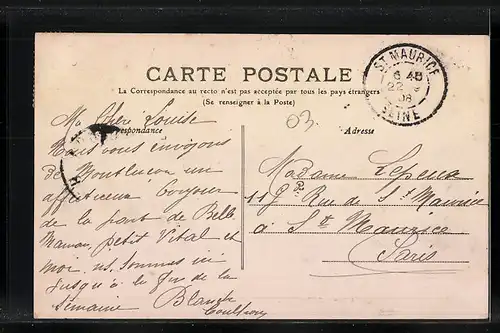 CARTE POSTALE
La Correspondance au recto n'est pas acceptée par tous les pays étrangers
(Se renseigner à la Poste)
Correspondance
Adresse
ST MAURICE
6 45
22
08
SEINE
03
Ma Chère Louise
Nous vous envoyons
de Montluçon un
affectueux bonjour
de la part de Belle
Maman, petit Vital et
moi ns. sommes ici
jusqu'à la fin de la
Semaine Blanche
Madame Lepeux
11 Gde Rue de St Maurice
à St Maurice
Paris